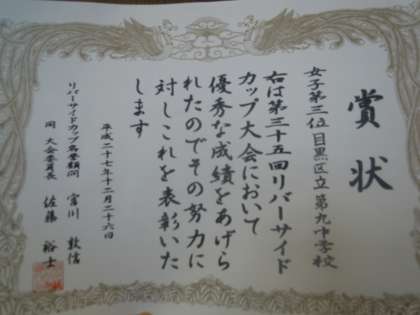 賞状
女子第三位 目黒区立第九中学校
右は第三十五回リバーサイド
カップ大会において
優秀な成績をあげら
れたのでその努力に
対しこれを表彰いた
します
平成二十七年十二月二十六日
リバーサイドカップ名誉顧問 宮川 敦信
同 大会委員長 佐藤 裕士